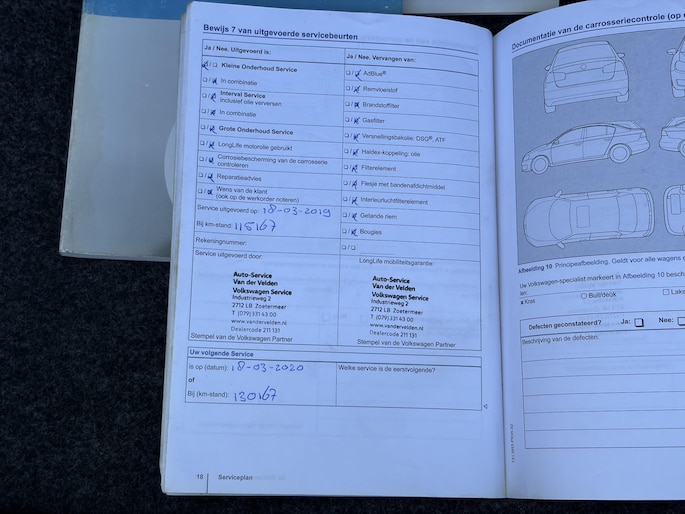 Bewijs 7 van uitgevoerde servicebeurten
Ja / Nee. Uitgevoerd is:
Kleine Onderhoud Service
In combinatie
Interval Service
inclusief olie verversen
In combinatie
Grote Onderhoud Service
LongLife motorolie gebruikt
Corrosiebescherming van de carrosserie
controleren
Reparatieadvies
Wens van de klant
(ook op de werkorder noteren)
Service uitgevoerd op: 18-03-2019
Bij km-stand: 115167
Rekeningnummer:
Service uitgevoerd door:
Auto-Service
Van der Velden
Volkswagen Service
Industrieweg 2
2712 LB Zoetermeer
T (079) 331 43 00
www.vandervelden.nl
Dealercode 211 131
Stempel van de Volkswagen Partner
Ja / Nee. Vervangen van:
AdBlue®
Remvloeistof
Brandstoffilter
Gasfilter
Versnellingsbakolie: DSG®, ATF
Haldex-koppeling: olie
Filterelement
Flesje met bandenafdichtmiddel
Interieurluchtfilterelement
Getande riem
Bougies
LongLife mobiliteitsgarantie:
Auto-Service
Van der Velden
Volkswagen Service
Industrieweg 2
2712 LB Zoetermeer
T (079) 331 43 00
www.vandervelden.nl
Dealercode 211 131
Stempel van de Volkswagen Partner
Uw volgende Service
is op (datum): 18-03-2020
of
Bij (km-stand): 130167
Welke service is de eerstvolgende?
18 Serviceplan
Documentatie van de carrosseriecontrole (op
Afbeelding 10 Principeafbeelding. Geldt voor alle wagens
Uw Volkswagen-specialist markeert in Afbeelding 10
x Kras
Buil/deuk
Defecten geconstateerd? Ja: Nee:
Beschrijving van de defecten: